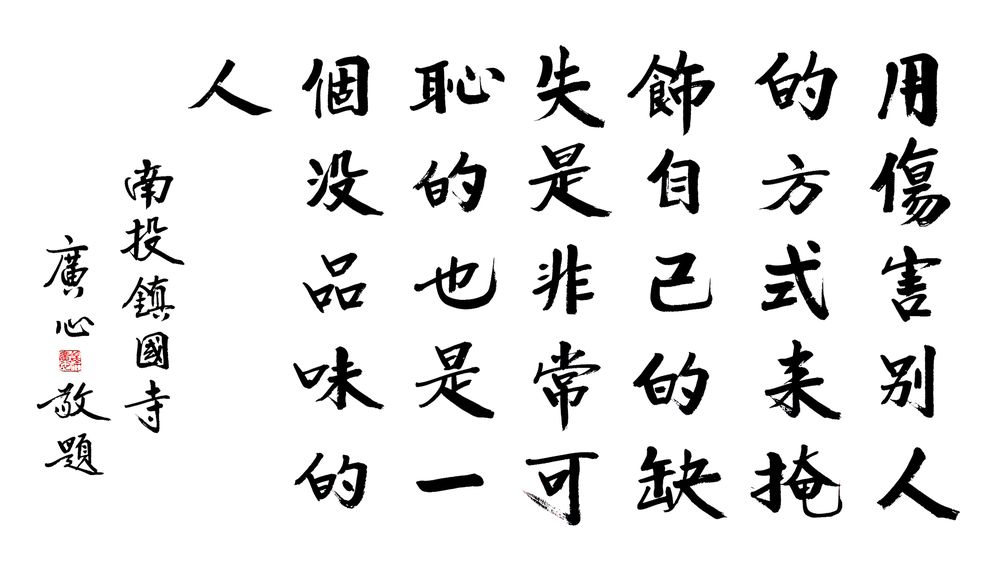 用傷害別人
的方式来掩
飾自己的缺
失是非常可
恥的也是一
個没品味的
人
南投鎮國寺
廣心敬題